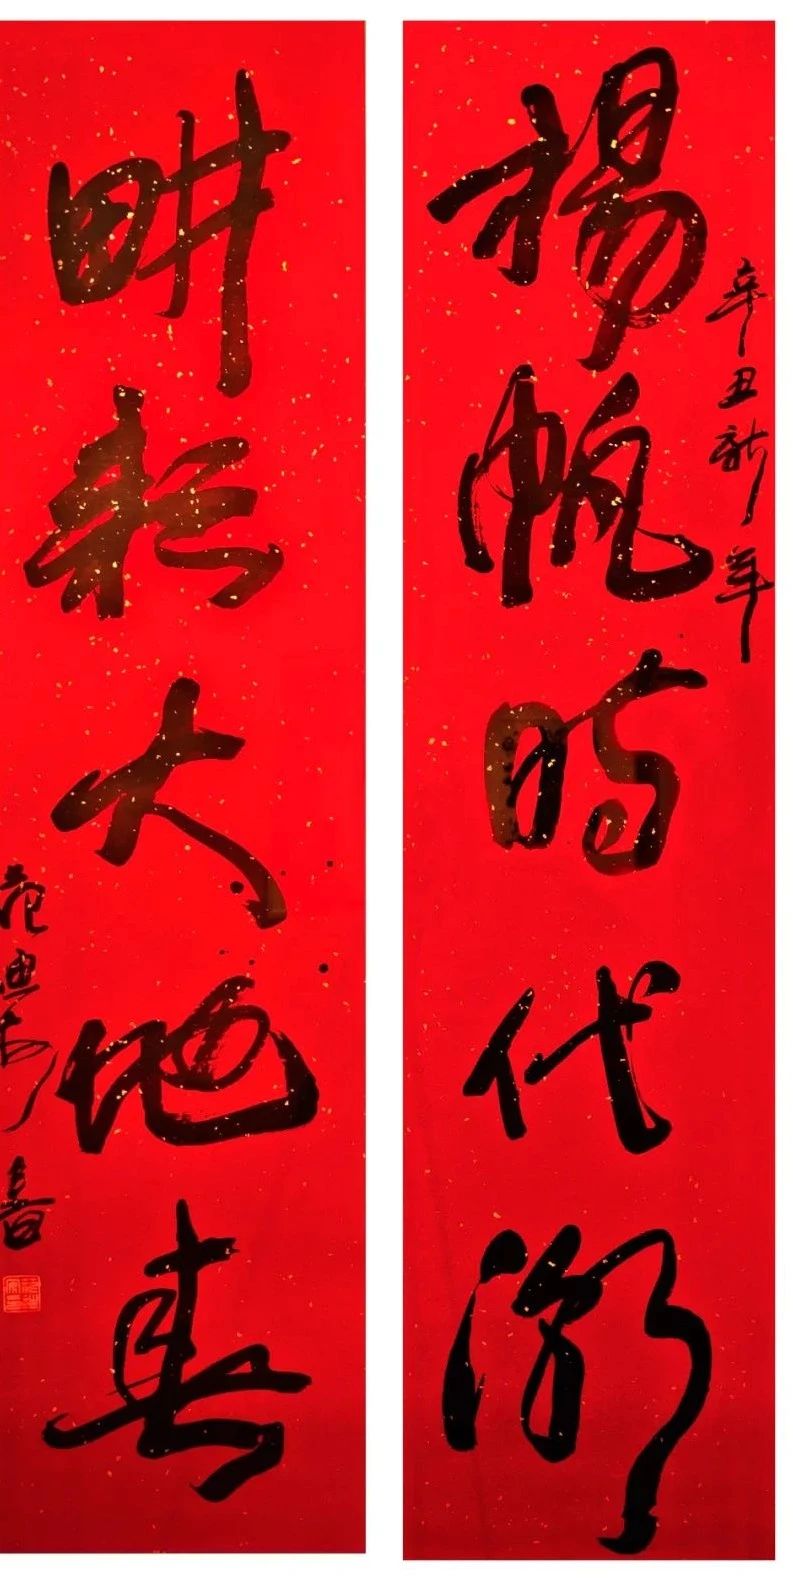 辛丑新年
揚帆时代潮
畊耘大地春
范迪安書